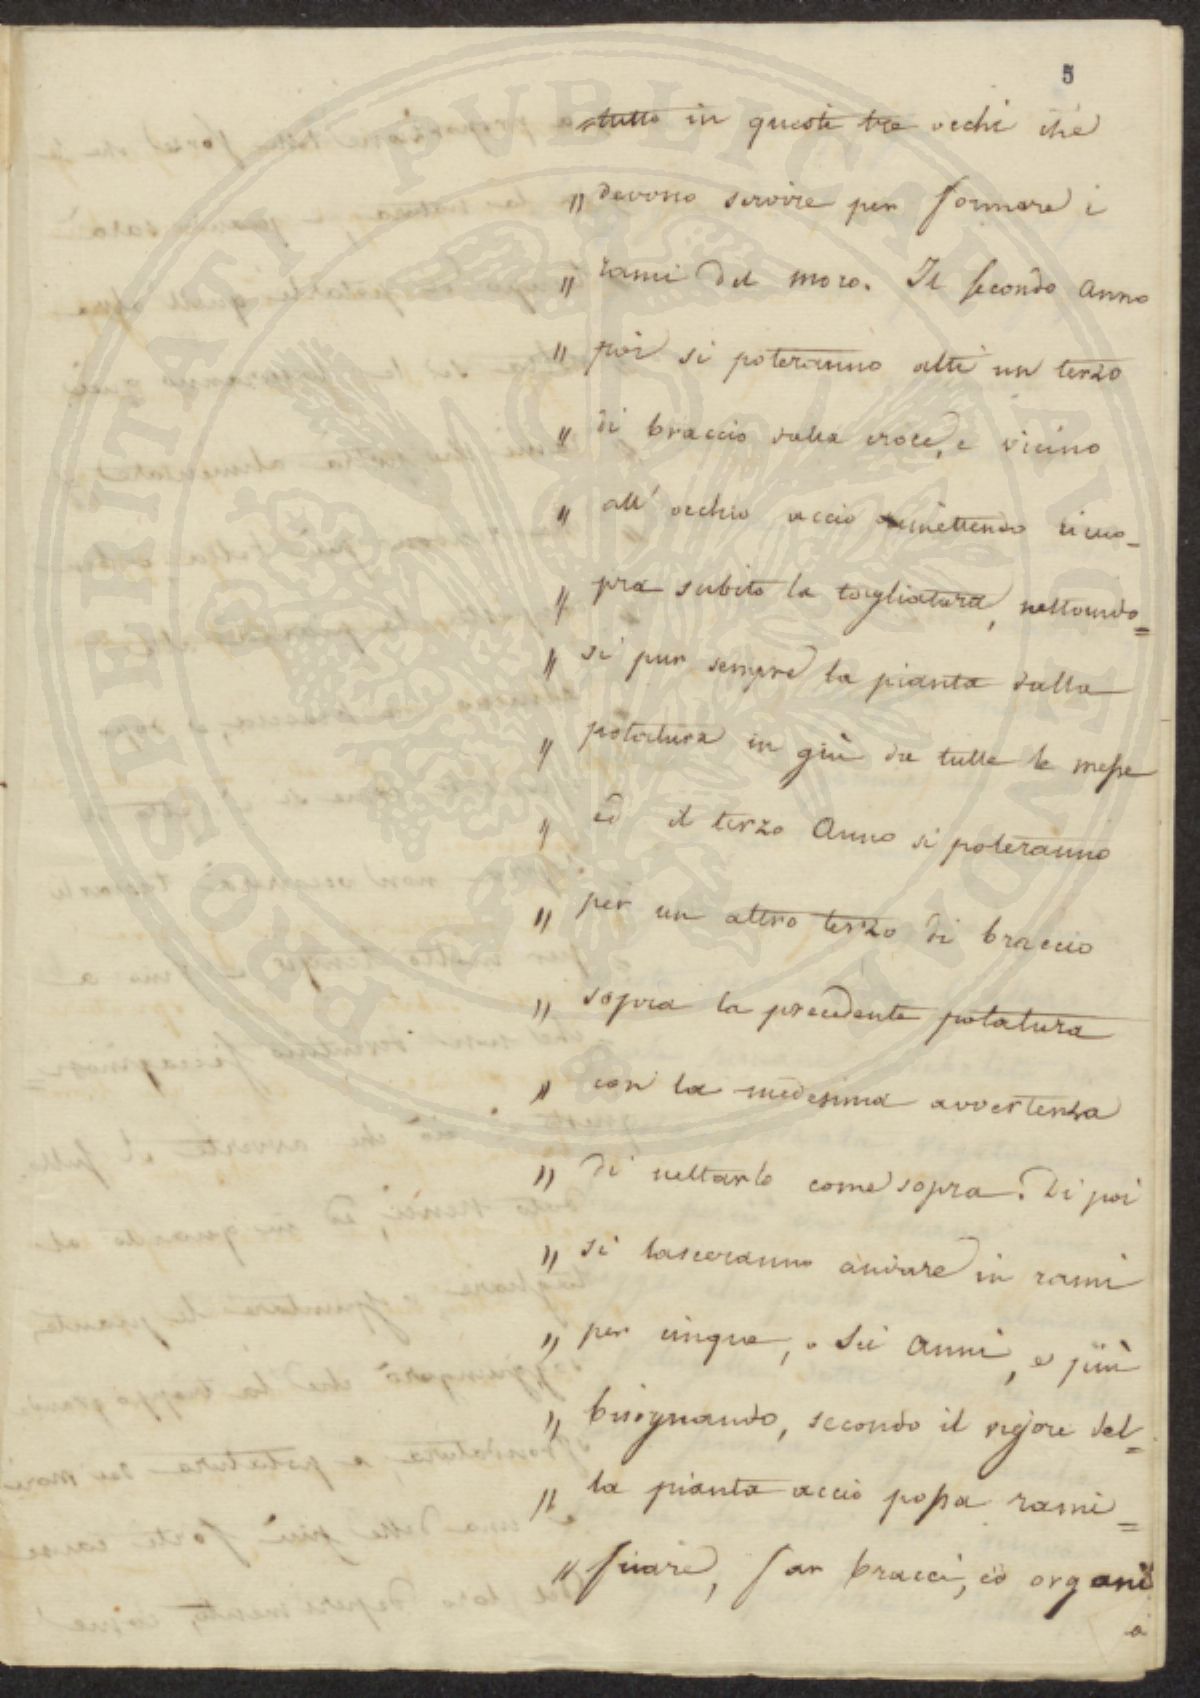 5
„ tutto in questi tre occhi che
„ devono servire per formare i
„ rami del moro. Il secondo anno
„ poi si poteranno alti un terzo
„ di braccio dalla croce, e vicino
„ all' occhio acciò rimettendo ricuo-
„ pra subito la tagliatura, nettando=
„ si pur sempre la pianta dalla
„ potatura in giù da tutte le messe
„ ed il terzo Anno si poteranno
„ per un altro terzo di braccio
„ sopra la precedente potatura
„ con la medesima avvertenza
„ di nettarlo come sopra. Di poi
„ si lasceranno andare in rami
„ per cinque, o sei anni, e più
„ bisognando, secondo il vigore del=
„ la pianta acciò possa rami=
„ ficare, far bracci, ed organi
a
PROSPERITATI PUBLICAE AUGENDAE